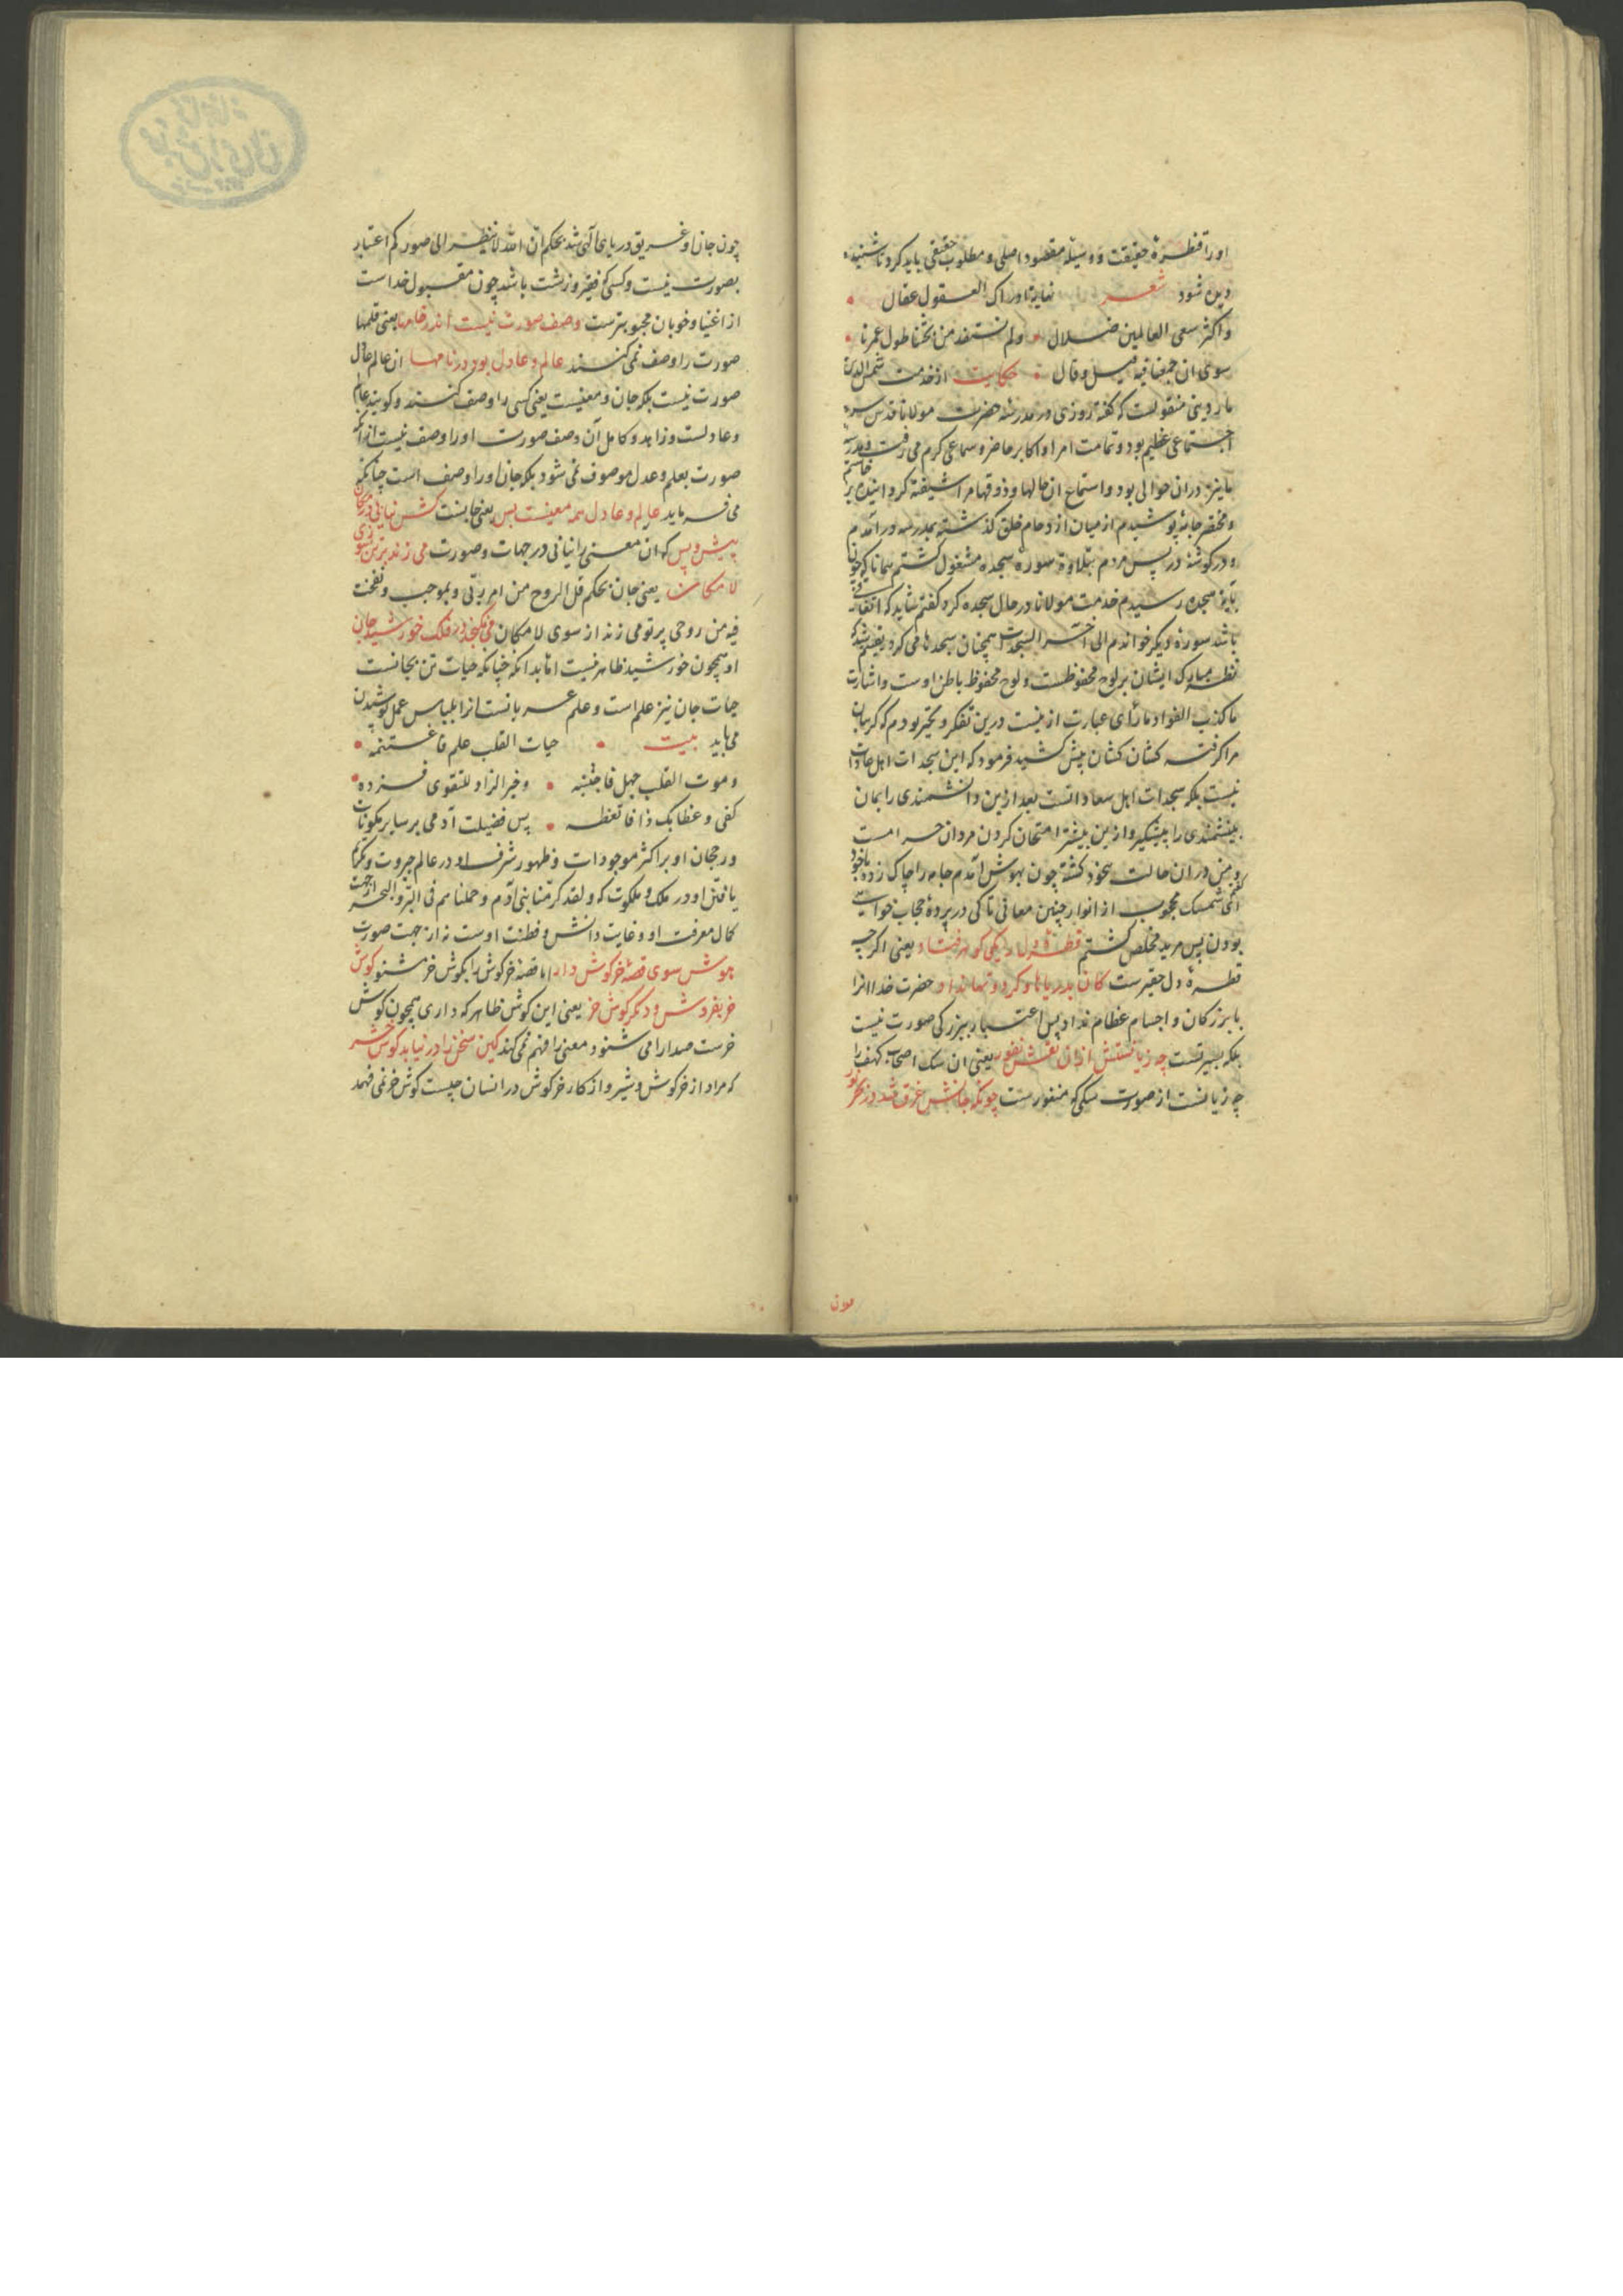 اورا قنطرهٔ حقیقت و وسیلهٔ مقصود اصلی و مطلوب حقیقی باید کرد تا شنیده
دین شود شعر نهایة ادراک العقول عقال
واکثر سعی العالمین ضلال ولم نستفد من بحثنا طول عمرنا
سوی ان جمعنا فیه قیل و قال حکایت از خدمت شمس الدین
ماردینی منقولست که گفت روزی در مدرسهٔ حضرت مولانا قدس سره
اجتماعی عظیم بود و تمامت امرا و اکابر حاضر و سماعی گرم می رفت
مانیز دران حوالی بود و استماع ان حالها و ذوقها مرا شیفته گردانیده
و مختصر جامهٔ پوشیدم از میان ازدحام خلق گذشته بمدرسه در آمدم
و در گوشهٔ در پس مردم بتلاوة سورهٔ سجده مشغول گشتم همانا که چون
بآیة سجده رسیدم خدمت مولانا در حال سجده کرد گفتم شاید که اتفاقی
باشد سورهٔ دیگر خواندم الی آخر السجدات همچنان سجدها می کرد یقینم شد که
نظر مبارک ایشان بر لوح محفوظست و لوح محفوظ باطن اوست و اشارت
ما کذب الفؤاد ما رأی عبارت ازینست درین تفکر و تحیر بودم که گریبان
مرا گرفته کشان کشان پیش کشید فرمود که این سجدات اهل عادات
نیست بلکه سجدات اهل سعاداتست بعد ازین دانشمندی را بمان
بینشمندی را پیش گیر و ازین بیشتر امتحان کردن مردان حرامست
و من دران حالت بیخود گشته چون بهوش آمدم جامه را چاک زده با خود
گفتم ای شمسک محجوب از انوار چنین معانی تا کی در پردهٔ حجاب خواهی
بودن پس مرید مخلص گشتم قطرهٔ دل را یکی گوهر فتاد یعنی اگرچه
قطرهٔ دل حقیرست کان بدریاها و گردونها نداد حضرت خدا انرا
با بزرگان و اجسام عظام نداد پس اعتبار ببزرگی صورت نیست
بلکه بسیرتست چه زیانستش ازان نقش نفور یعنی ان سک اصحاب کهف را
چه زیانست از صورت سکی که منفورست چونکه جانش غرق شد در بحر نور
چون
چون جان او غریق دریای الهی شد بحکم ان الله لا ینظر الی صورکم اعتبار
بصورت نیست و کسی که فقیر و زشت باشد چون مقبول خداست
از اغنیا و خوبان محبوبترست وصف صورت نیست اندر خامها یعنی قلمها
صورت را وصف نمی کنند عالم و عادل بود در نامها ان عالم عادل
صورت نیست بلکه جان و معنیست یعنی کسی را وصف کنند و گویند عالم
و عادلست و زاهد و کامل آن وصف صورت او را وصف نیست از آنکه
صورت بعلم و عدل موصوف نمی شود بلکه جان او را وصف است چنانکه
می فرماید عالم و عادل همه معنیست بس یعنی جانست کش نیابی در مکان
پیش و پس که ان معنی را نیابی در جهات و صورت می زند بر تن ز سوی
لا مکان یعنی جان بحکم قل الروح من امر ربی و بموجب و نفخت
فیه من روحی پرتو می زند از سوی لا مکان می نگنجد در فلک خورشید جان
او همچون خورشید ظاهر نیست اما بدانکه چنانکه حیات تن بجانست
حیات جان نیز علم است و علم عریانست انرا بلباس عمل پوشیدن
می باید بیت حیات القلب علم فاغتنمه
و موت القلب جهل فاجتنبه و خیر الزاد للتقوی فزده
کفی وعظا بک ذا فاتعظه پس فضیلت آدمی بر سایر مکونات
و رجحان او بر اکثر موجودات و ظهور شرف او در عالم جبروت و تکرمّ
یافتن او در ملک و ملکوت که ولقد کرمنا بنی آدم و حملناهم فی البر والبحر از جهت
کمال معرفت او و غایت دانش و فطنت اوست نه از جهت صورت
هوش سوی قصهٔ خرگوش دار اما قصهٔ خرگوش را بگوش خر مشنو گوش
خر بفروش و دیگر گوش خر یعنی این گوش ظاهر که داری همچون گوش
خرست صدا را می شنود معنی را فهم نمی کند کین سخن را در نیابد گوش خر
که مراد از خرگوش و شیر و از کار خرگوش در انسان چیست گوش خر نمی فهمد